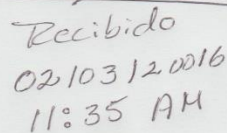 Recibido
02/03/20016
11:35 AM